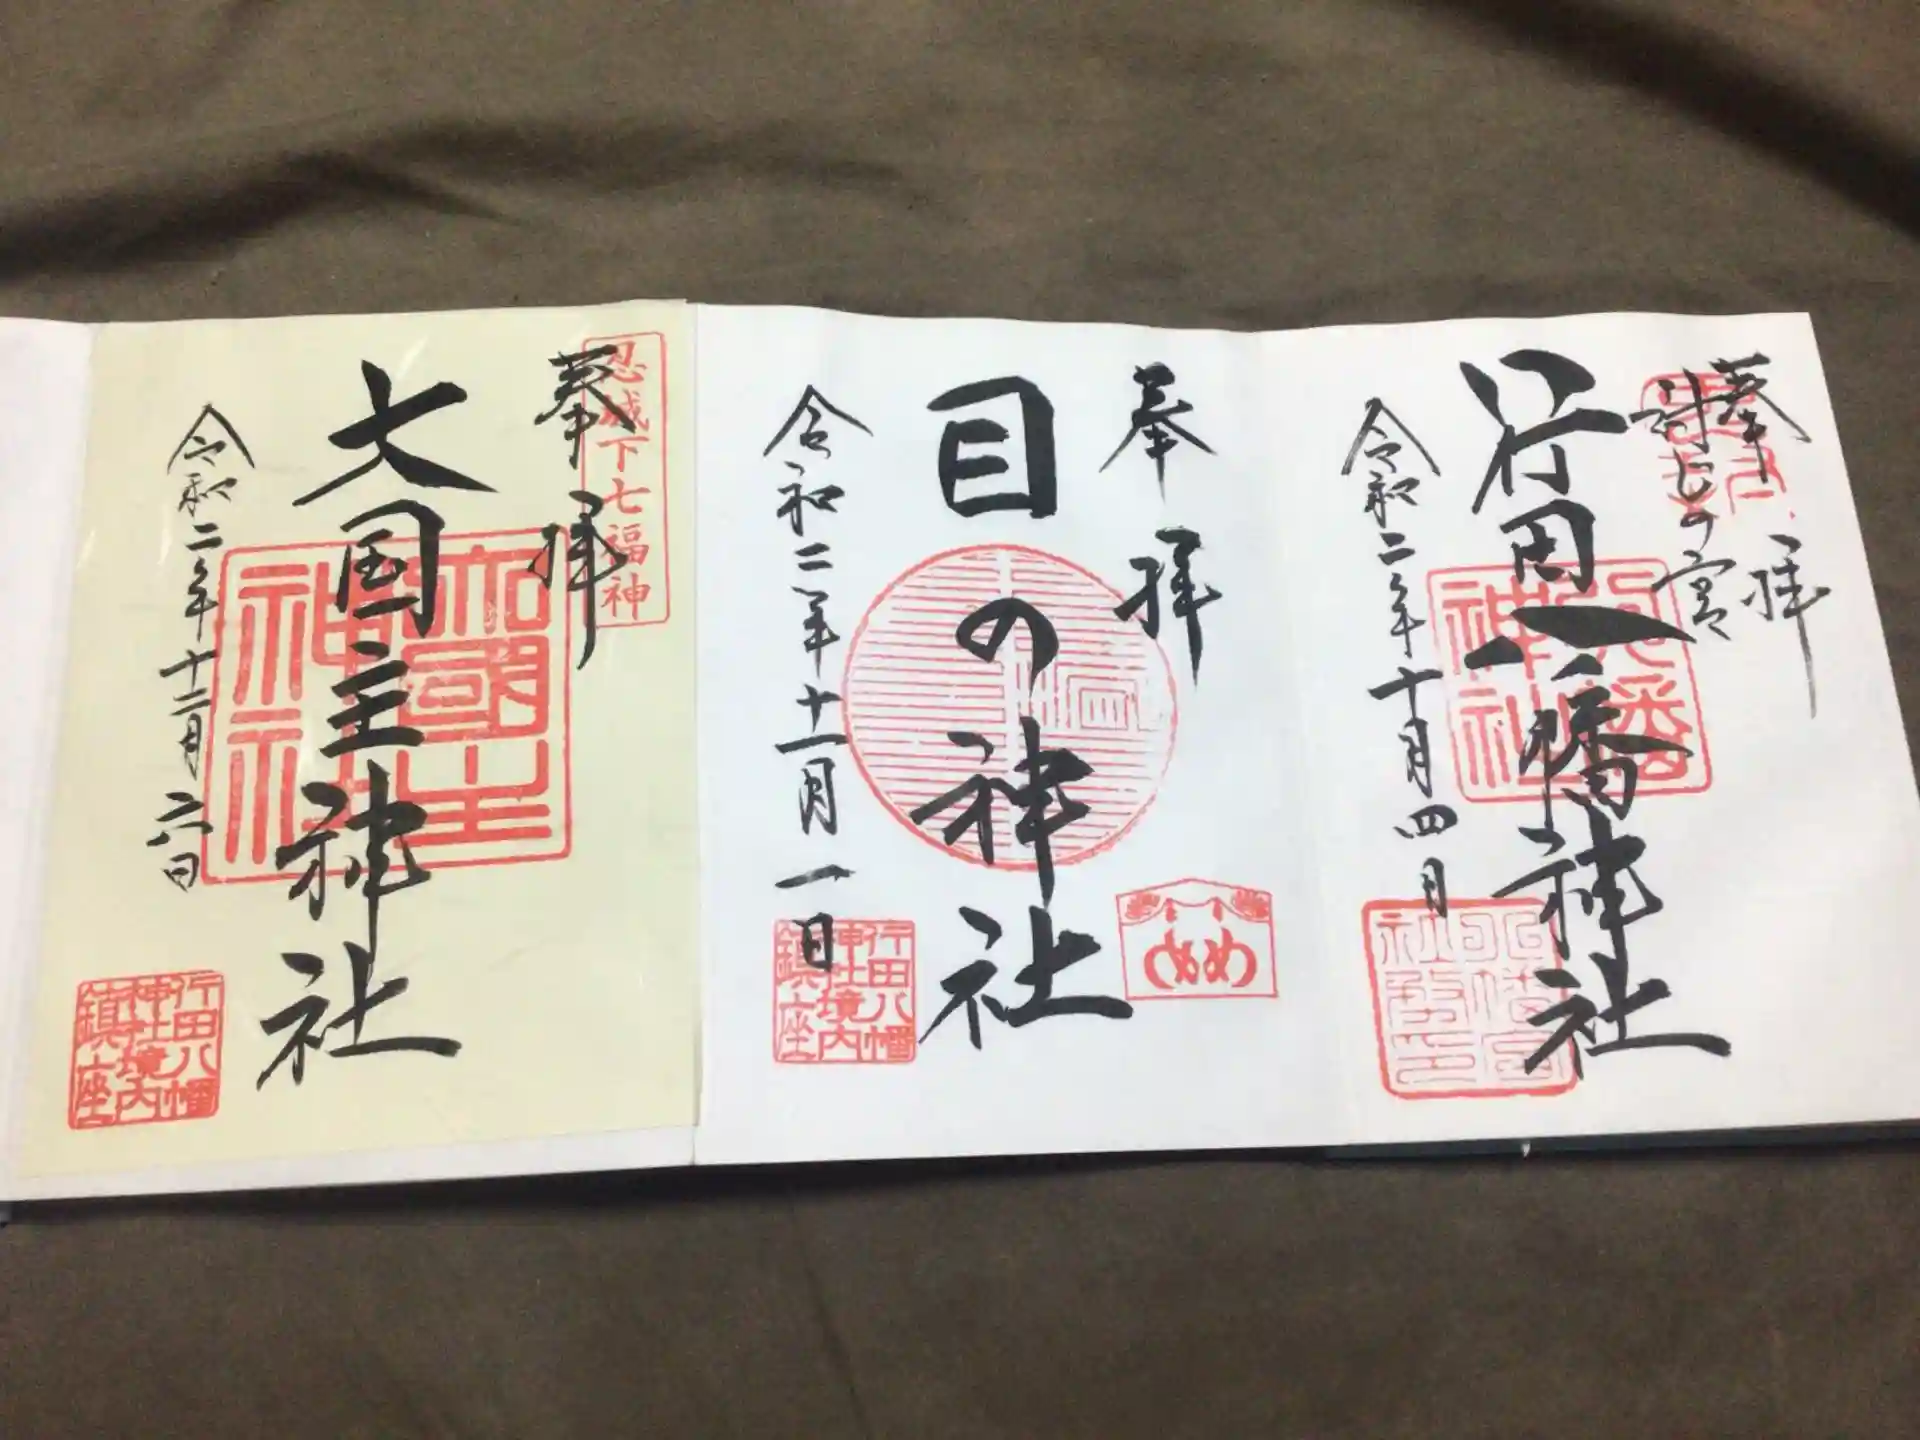 奉拝
封じの宮
行田八幡神社
令和二年十月四日
八幡神社
奉拝
目の神社
令和二年十一月一日
め め
行田八幡
神社境内
鎮座
忍城下七福神
奉拝
大国主神社
大國主
神社
令和二年十二月六日
行田八幡
神社境内
鎮座